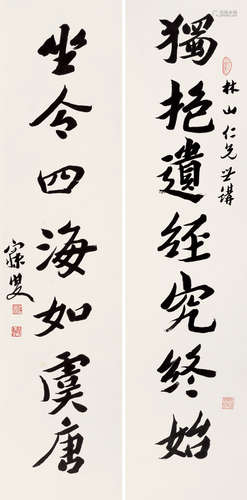 獨抱遺經究終始
林山仁兄世講
坐令四海如虞唐
寐叟